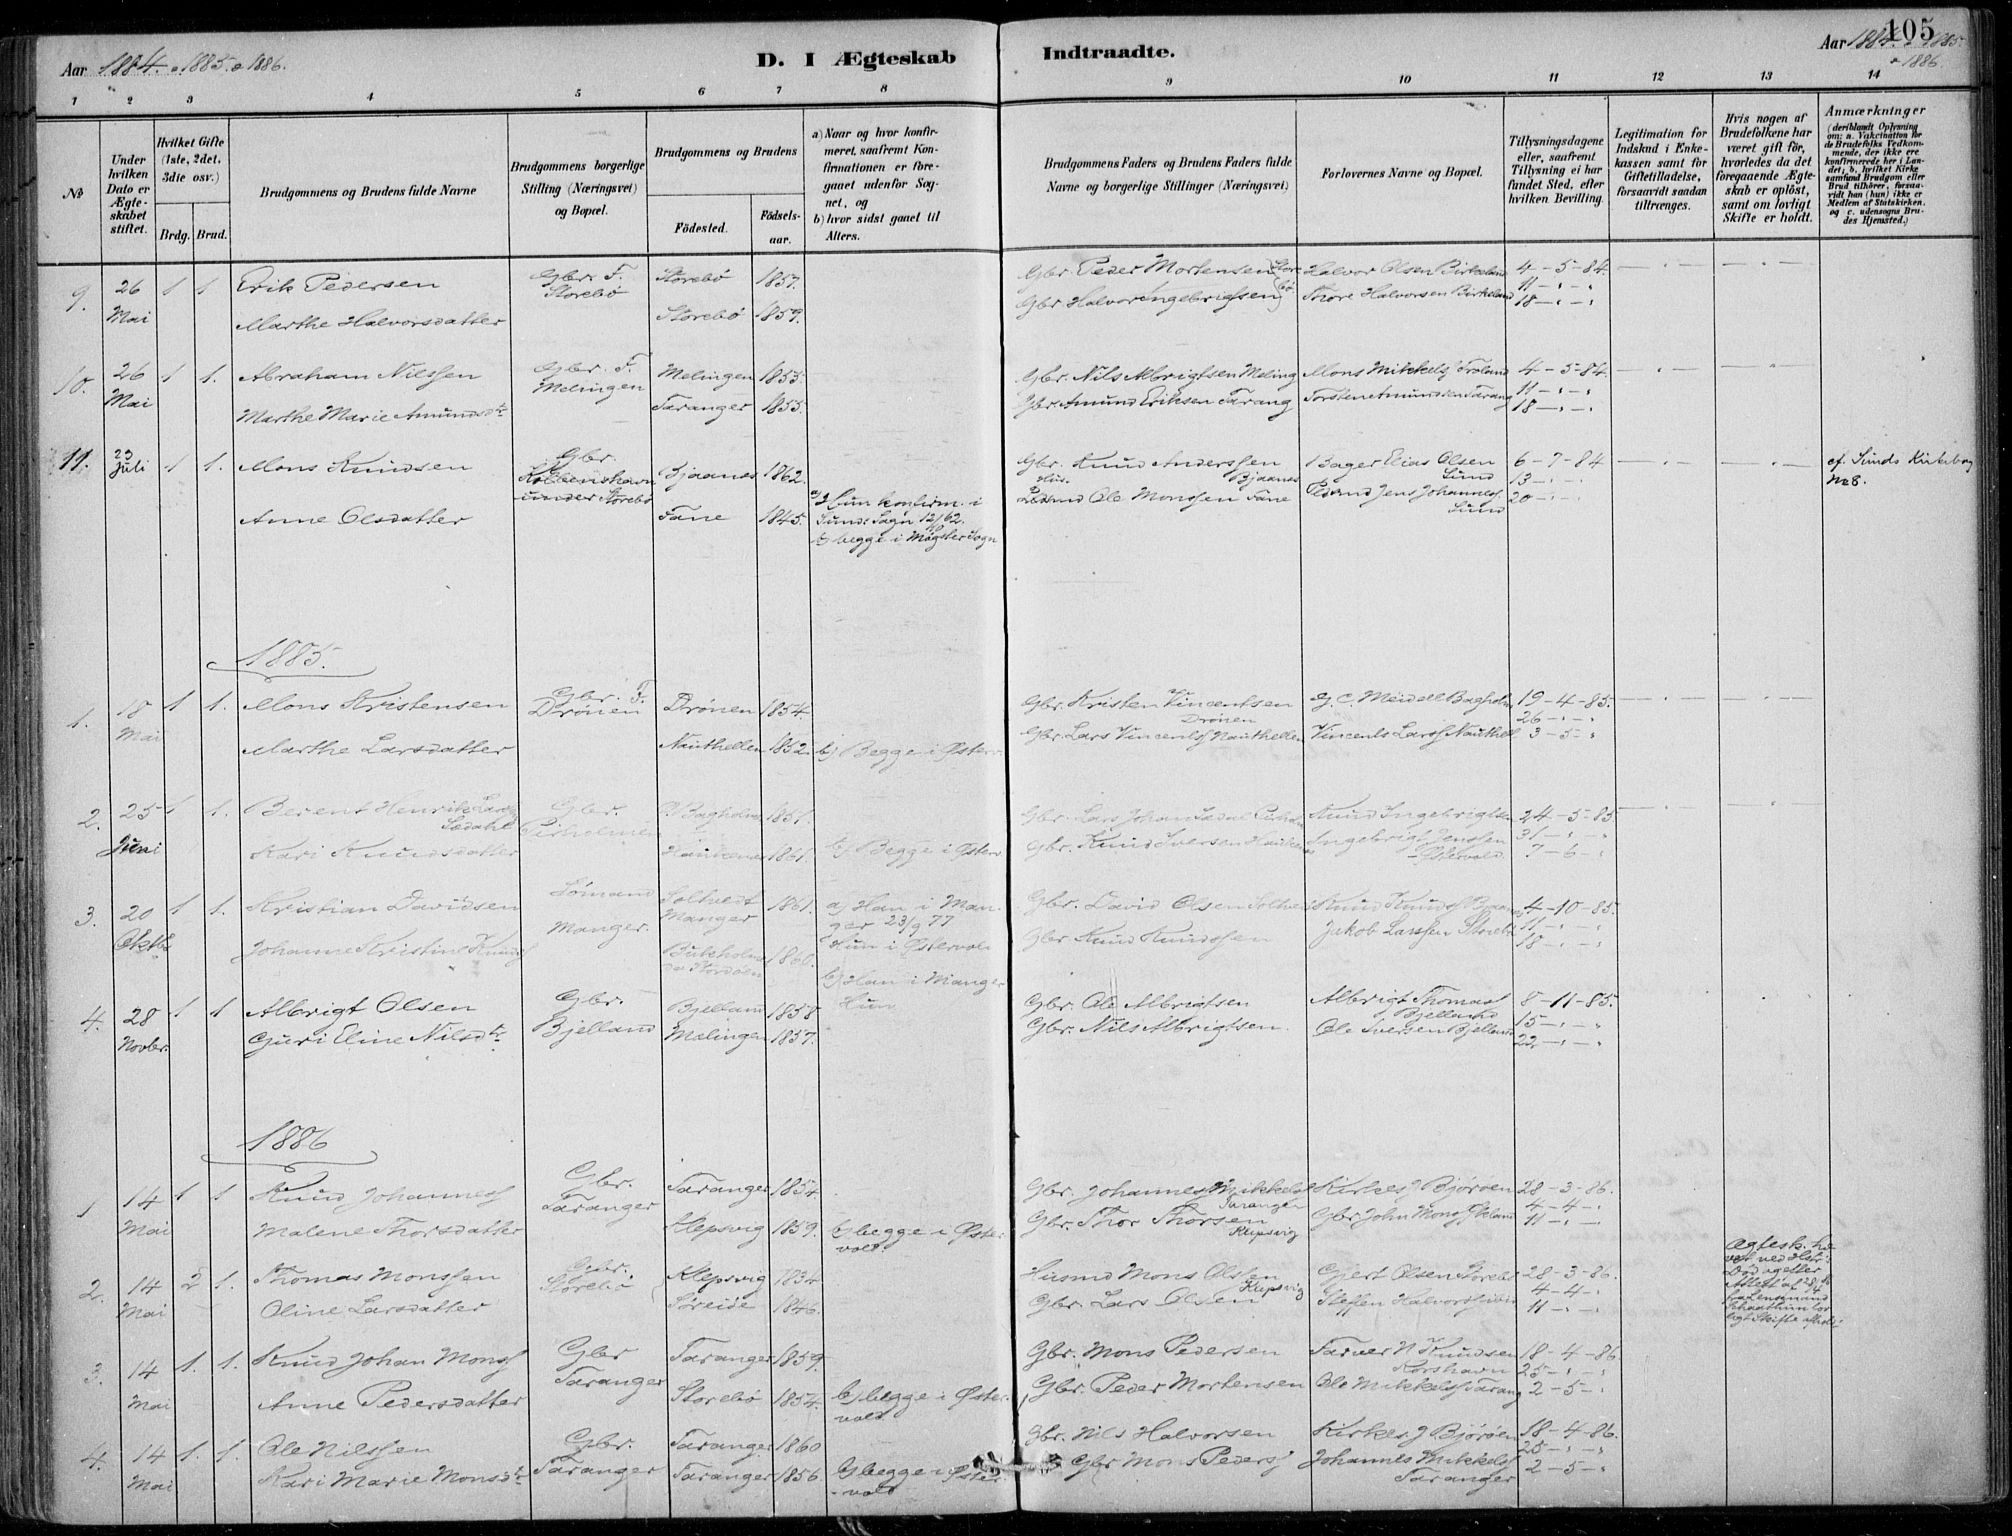 105
Aar 1884. o 1885. o 1886.
D. I Ægteskab Indtraadte.
Aar 1884 o 1885.
o 1886.
1 2 3 4 5 6 7 8 9 10 11 12 13 14
No
Under hvilken Dato er Ægteskabet stiftet.
Hvilket Gifte (1ste, 2det, 3die osv.)
Brdg. Brud.
Brudgommens og Brudens fulde Navne
Brudgommens borgerlige Stilling (Næringsvei) og Bopæl.
Brudgommens og Brudens
Födested.
Födsels-aar.
a) Naar og hvor konfirmeret, saafremt Konfirmationen er foregaaet udenfor Sognet, og
b) hvor sidst gaaet til Alters.
Brudgommens Faders og Brudens Faders fulde Navne og borgerlige Stillinger (Næringsvei)
Forlovernes Navne og Bopæl.
Tillysningsdagene eller, saafremt Tillysning ei har fundet Sted, efter hvilken Bevilling.
Legitimation for Indskud i Enkekassen samt for Giftetilladelse, forsaavidt saadan tiltrænges.
Hvis nogen af Brudefolkene har været gift för, hvorledes da det foregaaende Ægteskab er oplöst, samt om lovligt Skifte er holdt.
Anmærkninger
(deriblandt Oplysning om: a. Vakcination for de Brudefolks Vedkommende, der ikke ere konfirmerede her i Landet; b. hvilket Kirkesamfund Brudgom eller Brud tilhörer, forsaavidt han (hun) ikke er Medlem af Statskirken, og c. udensogns Brudes Hjemsted.)
9. 26 Mai 1 1 Erik Pedersen Gbr. F. Storebø Storebø 1857. Gbr. Peder Mortensen Storebø Halvor Olsen Birkeland 4-5-84.
Marthe Halvorsdatter Storebø 1859. Gbr Halvor Ingebrigtsen Thore Halvorsen Birkeland 11 - " - "
18 - " - "
10. 26 Mai 1 1. Abraham Nilssen Gbr. F. Melingen Melingen 1853. Gbr. Nils Albrigtsen Meling Mons Mikkels. Froland 4-5-84.
Marthe Marie Amundsdtr Taranger 1853. Gbr. Amund Eriksen Tarang Torsten Amundsen Tarang 11 - " - "
18 - " - "
11. 23 Juli 1 1. Mons Knudsen Gbr. Kolbenshavn under Storebø Bjaanes 1862. Gbr. Knud Anderssen Bjaanes Bager Elias Olsen Sund 6-7-84 cf. Sunds Kirkebog No 8.
Anne Olsdatter Fane 1845. a) Hun konfirm. i Sunds Sogn 12/10 62. Ole Monssen Fane Jens Johanness. Sund 13 - " - "
b) begge i Møgster Sogn 20 - " - "
1885.
1. 18 Mai 1 1. Mons Kristensen Gbr. F. Drönen Drönen 1854. Gbr. Kristen Vincentsen Drönen G. C. Meidell Bagholm 19-4-85.
26 - " - "
Marthe Larsdatter Nauthellen 1852. b) Begge i Østerv. Gbr. Lars Vincents. Nauthellen Vincents Larss. Nauthell 3-5- "
2. 25 Juni 1 1. Berent Henrik Lars. Ladahl Gbr. Pirholmen Bagholm 1857. Gbr. Lars Johan Knud Ingebrigtsen 24-5-85.
31 - " - "
Kari Knudsdatter Haukenes 1861. b) Begge i Østerv. Gbr. Knud Iversen Hauknes Ingebrigt Jenssen Østervold. 7-6- "
3. 20 Oktbr 1 1. Kristian Davidsen Sömand Manger. Soltvedt Manger 1861. a) Han i Manger 23/9 77 Gbr. David Olsen Knud Knuds. 4-10-85.
Johanne Kristine Knuds. Bukholm 1860. Hun i Østervold Gbr Knud Knudssen Jakob Larssen Storebø 11 - " - "
b) Han i Manger 18 - " - "
Hun
4. 28 Novbr. 1 1 Albrigt Olsen Gbr. Bjelland Bjelland 1858 Gbr. Ole Albrigtsen Albrigt Thomass. Bjelland 8-11-85.
Guri Eline Nilsdtr Melingen 1857. Gbr. Nils Albrigtsen. Ole Iversen Bjelland 15 - " - "
22 - " - "
1886
1 14 Mai 1 1 Knud Johanness. Gbr. Taranger Taranger 1854. Gbr. Johannes Mikkels. Taranger Kirkes. J Bjøröen 28-3-86.
4-4- "
Malene Thorsdatter Klepsvig 1859. b) begge i Østervold. Gbr. Thor Thorsen Klepsvig Gbr. John Mons. Økland 11 - " - "
2. 14 Mai 2 1. Thomas Monssen Gbr. Storebø Klepsvig 1834 Husmd Mons Olsen Klepsvig Gjert Olsen Storebø 28-3-86.
4-4- "
Oline Larsdatter Søreide 1846. Gbr. Lars Olsen Steffen Halvors. 11 - " - "
Ægtesk. hævet ved Hstr. Död og efter Attest af 28/4 86 fra Lensmand Schaathun lovligt Skifte afholdt
3. 14 Mai 1. 1. Knud Johan Mons. Gbr Taranger Taranger 1859. Gbr. Mons Pedersen Farver N Knudsen Korshavn 18-4-86.
25 - " - "
Anne Pedersdatter Storebø 1854. b) begge i Østervold Gbr. Peder Mortensen Ole Mikkels. Tarang 2-5- "
4. 14 Mai 1. 1. Ole Nilssen Gbr. Taranger Taranger 1860 Gbr. Nils Halvorsen Kirkes. J Bjøröen 18-4-86.
25 - " - "
Kari Marie Monsdtr Taranger 1856. b) begge i Østervold Gbr Mons Peders. Johannes Mikkels. Taranger 2-5- "